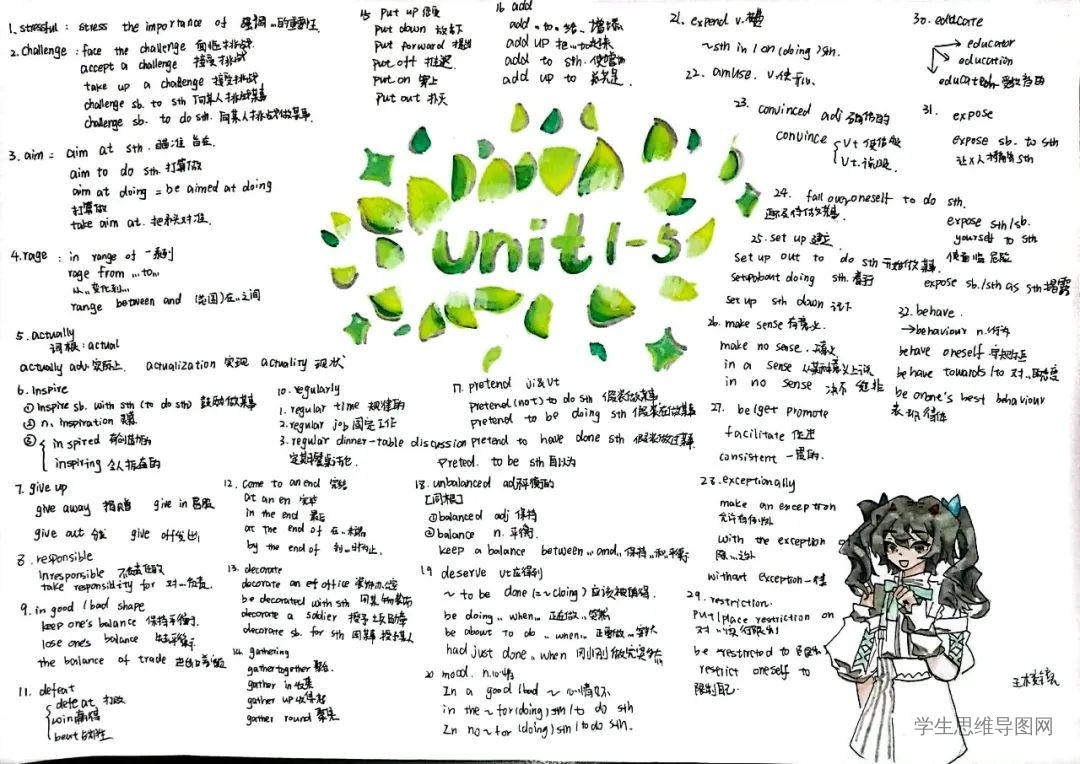 1. stressful : stress the importance of 强调...的重要性
2. challenge : face the challenge 面临挑战
accept a challenge 接受挑战
take up a challenge 接受挑战
challenge sb. to sth 向某人挑战某事
challenge sb. to do sth. 向某人挑战做某事.
3. aim : aim at sth. 瞄准 旨在
aim to do sth. 打算做
aim at doing = be aimed at doing
打算做
take aim at. 把
4. rage : in range of 一系列
rage from ...to...
从..变化到...
range between and 在..之间
5. actually
词根: actual
actually adv. 实际上. actualization 实现 actuality 现状
6. Inspire
① inspire sb. with sth (to do sth) 鼓励做某事
② n. inspiration 灵感
③ inspired
inspiring 令人振奋的
7. give up
give away 捐赠 give in 屈服
give out 分发 give off 发出
8. responsible
Inresponsible 不负责任的
take responsibility for 对...负责.
9. in good / bad shape
keep one's balance 保持平衡.
lose one's balance 失去平衡
the balance of trade
11. defeat
defeat 打败
win 赢得
beat
10. regularly
1. regular time 规律的
2. regular job 固定工作
3. regular dinner-table discussion
定期餐桌讨论.
12. come to an end 完结
at an en
in the end 最后
at the end of 在...末端
by the end of 到...时为止.
13. decorate
decorate an ef office 装饰办公室
be decorated with sth 用某物装饰
decorate a soldier 授予士兵勋章
decorate sb. for sth 因某事授予某人
14. gathering
gather together 聚合.
gather in 收集
gather up 收集起
gather round 聚集
15 put up
put down 放下
put forward 提出
put off 推迟.
put on 穿上
put out 扑灭
16. add
add .. to .. 给.. 增添
add up 把...加起来
add to sth. 使增加
add up to 总共是.
17. pretend vi&vt
pretend (not) to do sth 假装做某事
pretend to be doing sth 假装在做某事
pretend to have done sth 假装做过某事
preted. to be sth 自以为
18. unbalanced adj 不平衡的
[同根]
① balanced adj 保持
② balance n. 平衡.
keep a balance between .. and .. 保持..和..平衡
19 deserve vt 应得到
~ to be done (= ~ doing) 应该被
be doing .. when .. 正在做.. 突然
be about to do .. when .. 正要做...突然
had just done .. when 刚刚做完突然
20 mood. n. 心情
In a good / bad ~ 心情好/坏
in the ~ for (doing) sth / to do sth
In no ~ for (doing) sth / to do sth.
unit 1-5
21. expend v.
~ sth in / on (doing) sth.
22. amuse. v.
23. convinced adj 确信的
convince vt 使信服
vt. 说服.
24. fall over oneself to do sth.
25. set up 建立
set up out to do sth 开始做某事
set up about doing sth. 着手
set up sth down 记下
26. make sense 有意义.
make no sense. 无意义
in a sense 从某种意义上说
in no sense 决不 绝非
27. be/get promote
facilitate 促进
consistent 一贯的.
28. exceptionally
make an exception
允许有例外
with the exception of
除...之外
without exception 一律
29. restriction.
put / place restriction on
对...实行限制
be restricted to
restrict oneself to
限制自己.
30. educate
educator
education
31. expose
expose sb. to sth
让某人接触 sth
expose sth / sb.
yourself to sth
使面临危险
expose sb./sth as sth 揭露
32. behave .
→ behaviour n. 行为
behave oneself 守规矩
be have towards / to 对...态度
be on one's best behaviour
表现得体
学生思维导图网